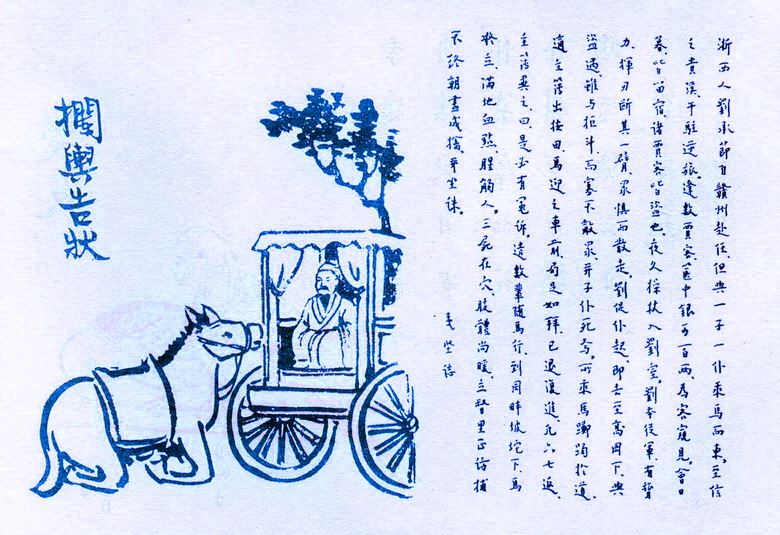 浙西人劉承節自贛州赴任，但與一子一仆乘馬而東。至信
之貴溪，午駐逆旅，逢數賈客。篋中銀可百兩，為客窺見。會日
暮，皆留宿，諸賈客皆盜也，夜久操杖入劉室。劉本從軍，有膂
力，揮刃斷其一臂，眾懼而散走。劉促仆起，即去至高岡下，與
盜遇，雖与拒斗，而寡不敵眾，并子仆死焉。所乘馬躑躅於道，
適主簿出按田，馬迎之車前，局足如拜，已退復進，凡六七返。
主簿異之，曰，是必有冤訴。遣數輩隨馬行，到岡畔坡坨下，馬
立，滿地血點腥觸人。三屍在穴，肢體尚暖，立督里正訪捕
不終朝盡成擒，并坐誅。
夷堅志
攔輿告狀